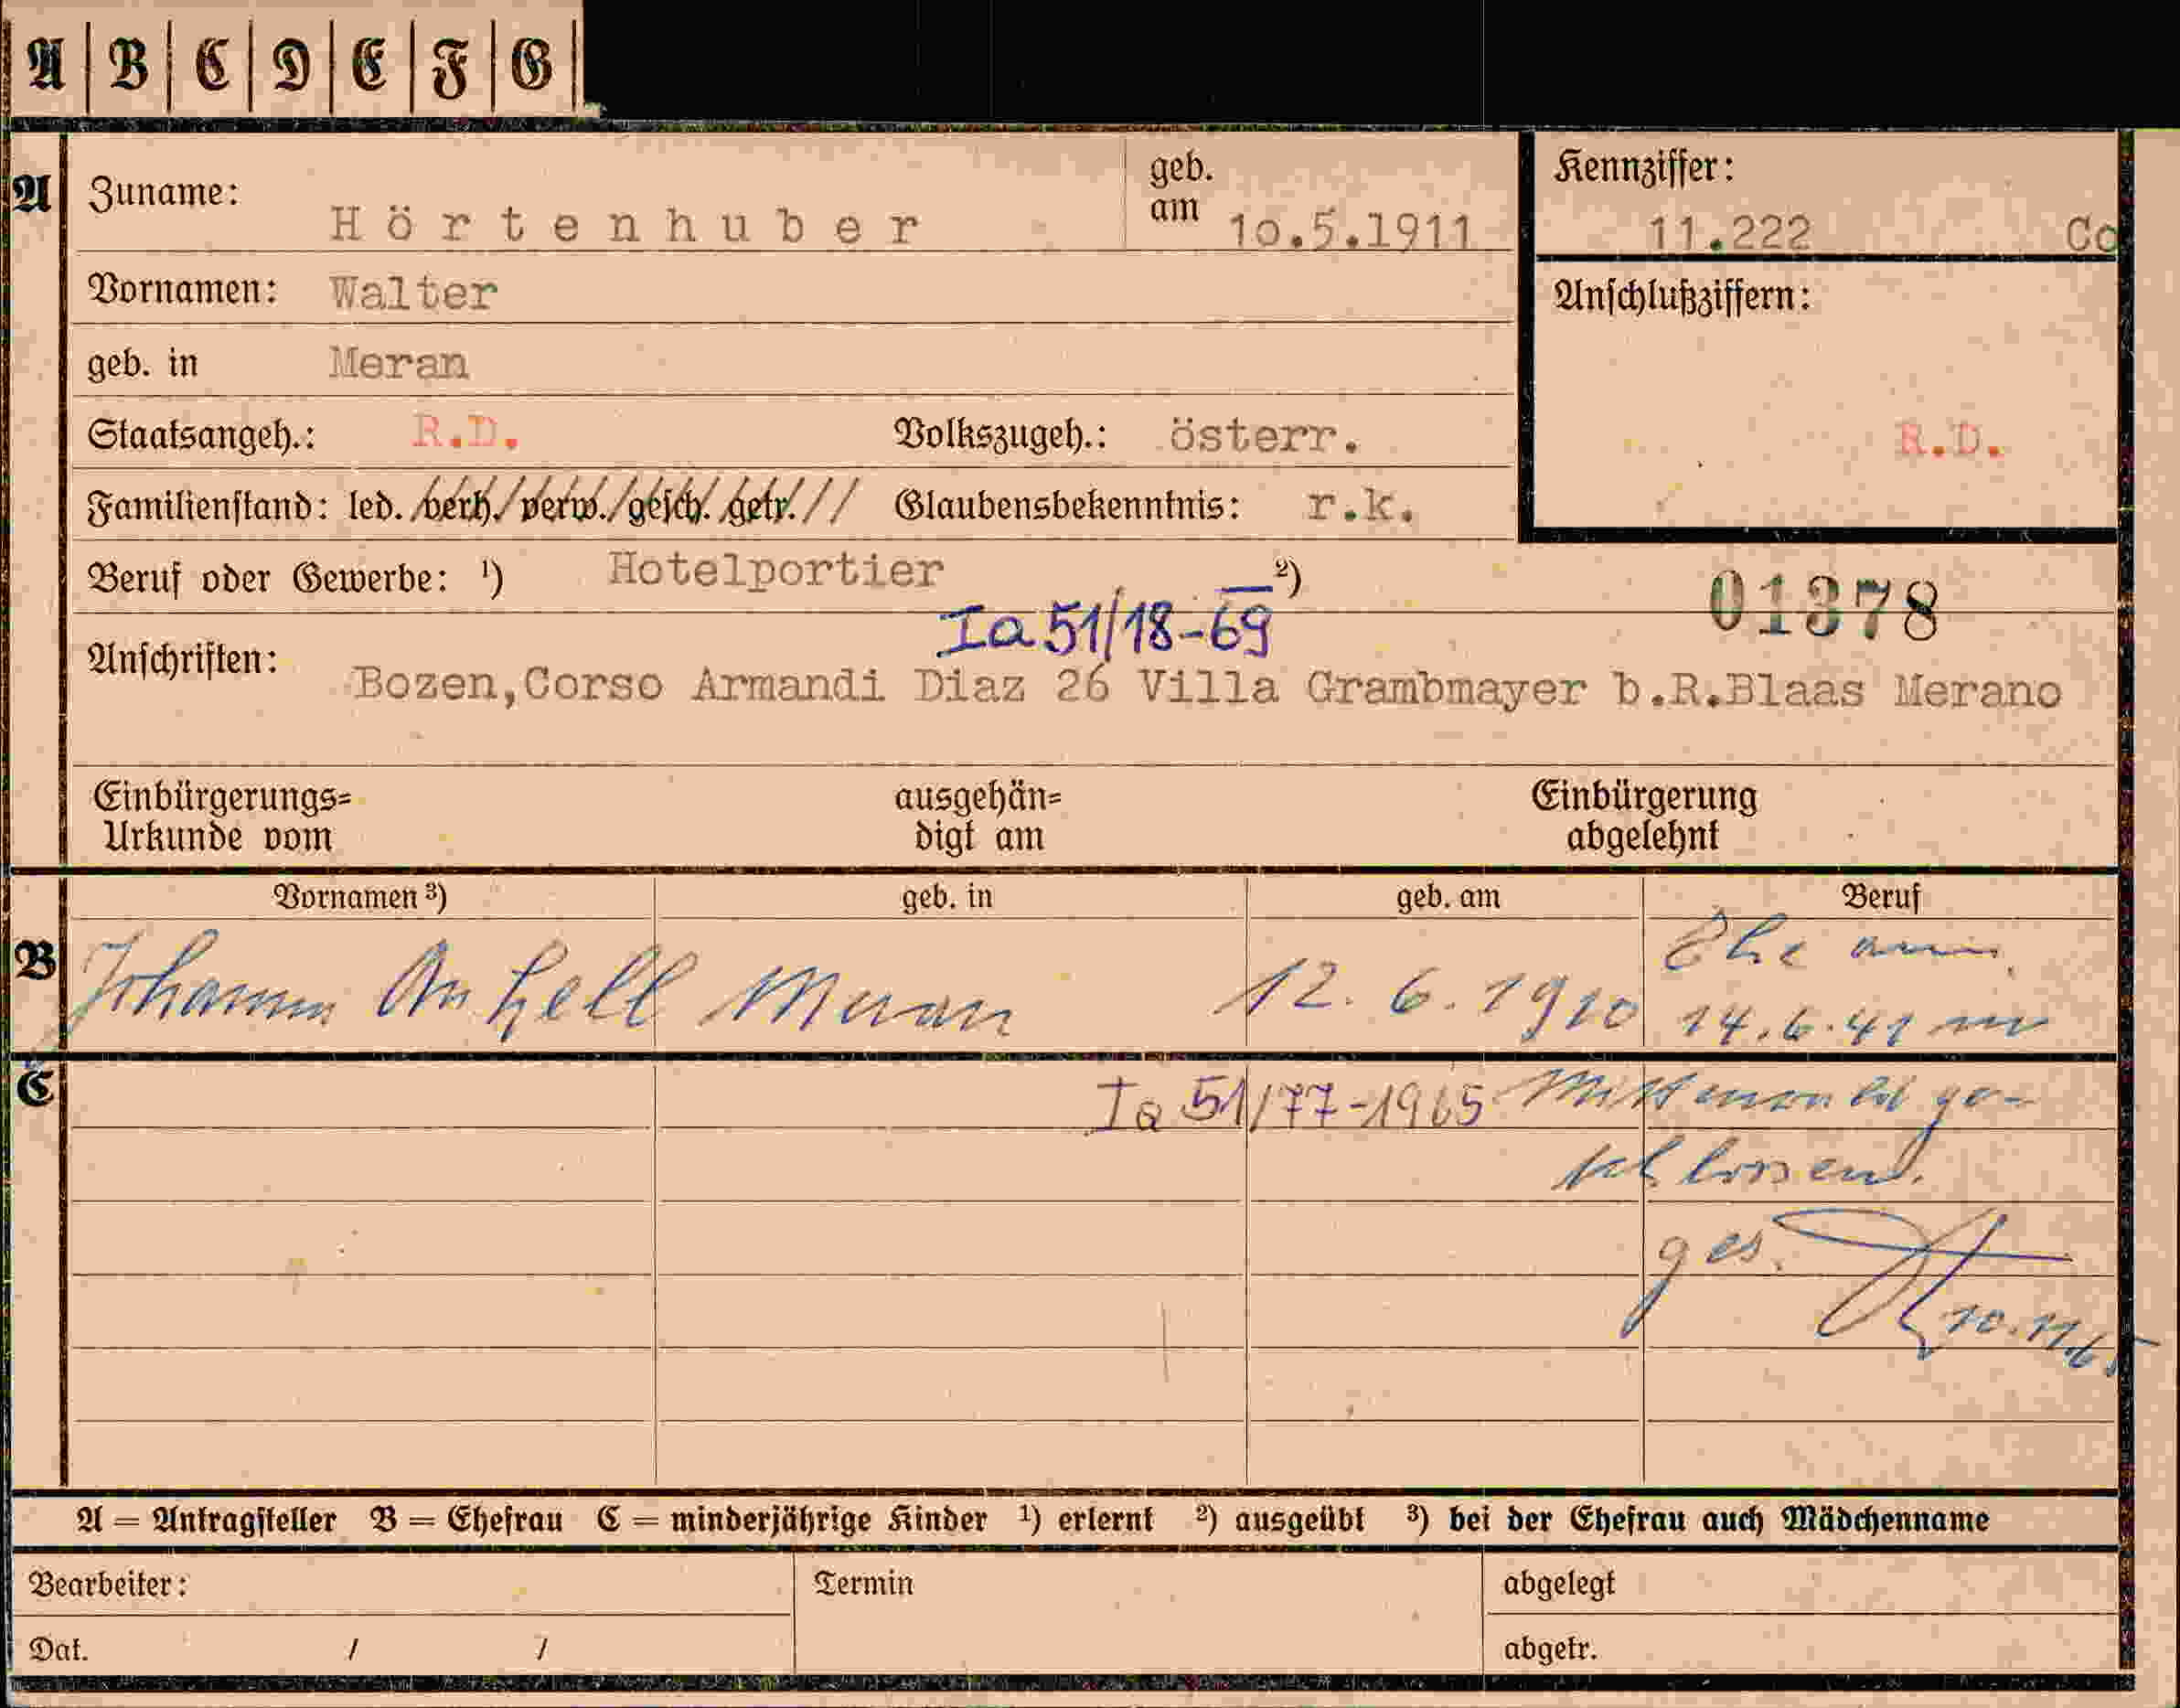 A B C D E F G
A
Zuname: Hörtenhuber
geb. am 10.5.1911
Kennziffer:
11.222 Co
Vornamen: Walter
Anschlußziffern:
geb. in Meran
Staatsangeh.: R.D. Volkszugeh.: österr.
R.D.
Familienstand: led. verh. verw. gesch. getr. Glaubensbekenntnis: r.k.
Beruf oder Gewerbe: ¹) Hotelportier ²)
01378
Ia 51/18-69
Anschriften: Bozen,Corso Armandi Diaz 26 Villa Grambmayer b.R.Blaas Merano
Einbürgerungs=
Urkunde vom
ausgehän=
digt am
Einbürgerung
abgelehnt
Vornamen ³) geb. in geb. am Beruf
B
Meran 12. 6. 1910
Ehe am
14.6.41 in
C
Ia 51/77-1965
ge-
schlossen.
ges.
10.11.65
A = Antragsteller B = Ehefrau C = minderjährige Kinder ¹) erlernt ²) ausgeübt ³) bei der Ehefrau auch Mädchenname
Bearbeiter: Termin abgelegt
Dat. / / abgetr.